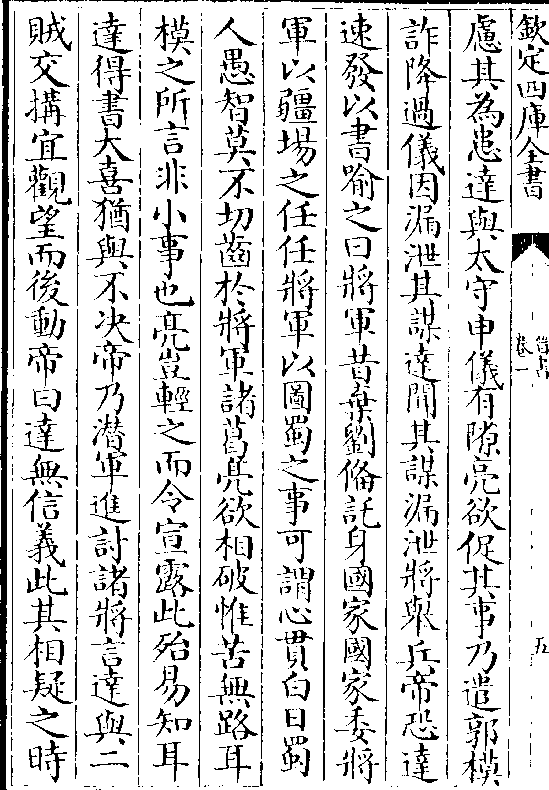 欽定四庫全書
晉書
卷一
五
慮其為患達與太守申儀有隙亮欲促其事乃遣郭模
詐降過儀因漏泄其謀達聞其謀漏泄將舉兵帝恐達
速發以書喻之曰將軍昔棄劉備託身國家國家委將
軍以疆埸之任任將軍以圖蜀之事可謂心貫白日蜀
人愚智莫不切齒於將軍諸葛亮欲相破惟苦無路耳
模之所言非小事也亮豈輕之而令宣露此殆易知耳
達得書大喜猶與不決帝乃潛軍進討諸將言達與二
賊交搆宜觀望而後動帝曰達無信義此其相疑之時